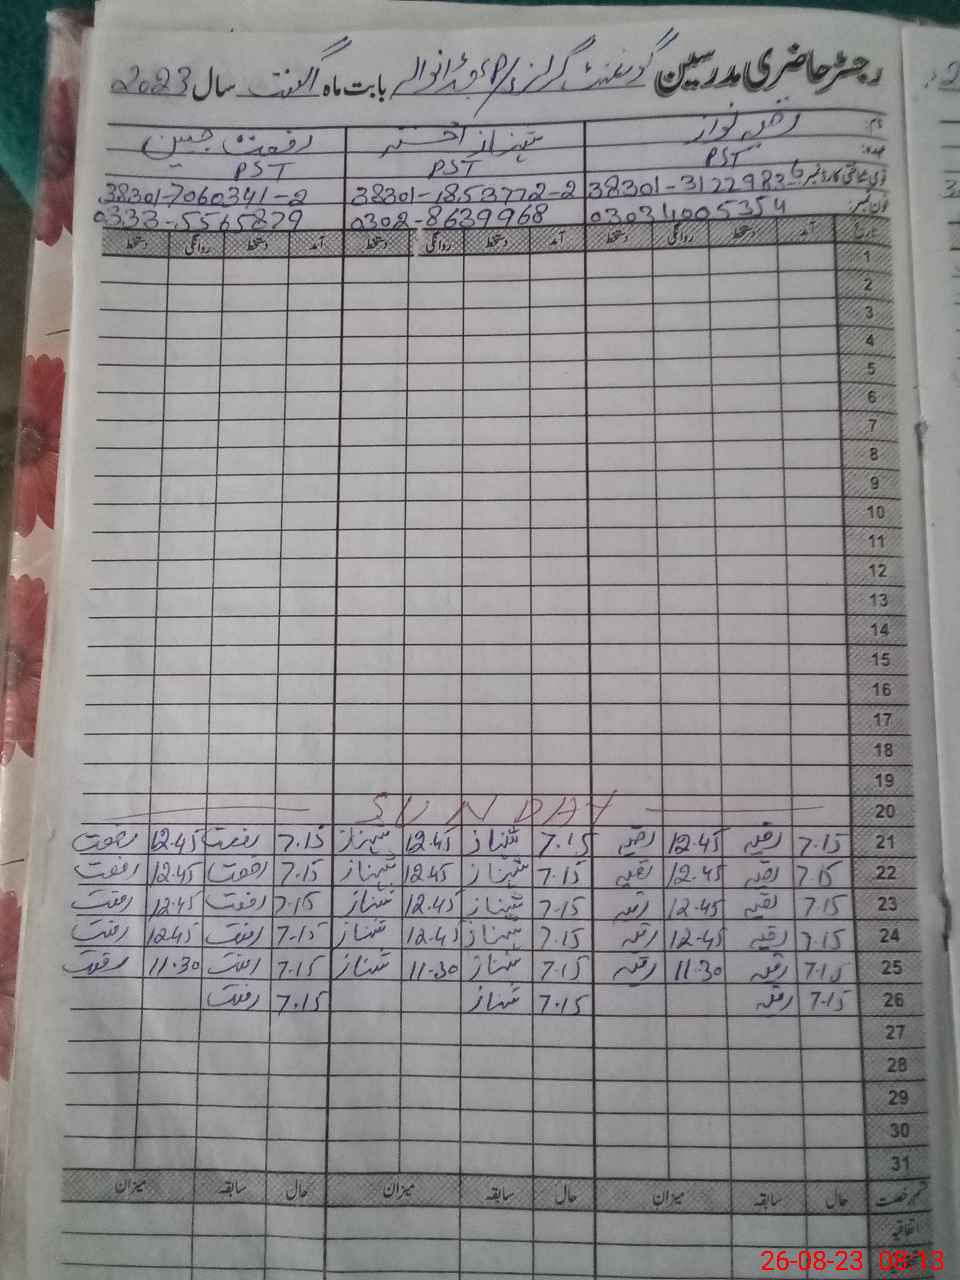 رجسٹر حاضری مدرسین گورنمنٹ گرلز P/S بابت ماہ اگست سال 2023
نام: رقیہ نواز شہناز اختر رفعت جبین
عہدہ: PST PST PST
38301-3122983-6 38301-1853772-2 38301-7060341-2
فون نمبر: 03034005354 0302-8639968 0333-5565879
تاریخ آمد دستخط روانگی دستخط آمد دستخط روانگی دستخط آمد دستخط روانگی دستخط
1
2
3
4
5
6
7
8
9
10
11
12
13
14
15
16
17
18
19
20 SUNDAY
21 7.15 رقیہ 12.45 رقیہ 7.15 شہناز 12.45 شہناز 7.15 رفعت 12.45 رفعت
22 7.15 رقیہ 12.45 رقیہ 7.15 شہناز 12.45 شہناز 7.15 رفعت 12.45 رفعت
23 7.15 رقیہ 12.45 رقیہ 7.15 شہناز 12.45 شہناز 7.15 رفعت 12.45 رفعت
24 7.15 رقیہ 12.45 رقیہ 7.15 شہناز 12.45 شہناز 7.15 رفعت 12.45 رفعت
25 7.15 رقیہ 11.30 رقیہ 7.15 شہناز 11.30 شہناز 7.15 رفعت 11.30 رفعت
26 7.15 رقیہ 7.15 شہناز 7.15 رفعت
27
28
29
30
31
قسم رخصت حال سابقہ میزان حال سابقہ میزان حال سابقہ میزان
اتفاقیہ
26-08-23 08:13